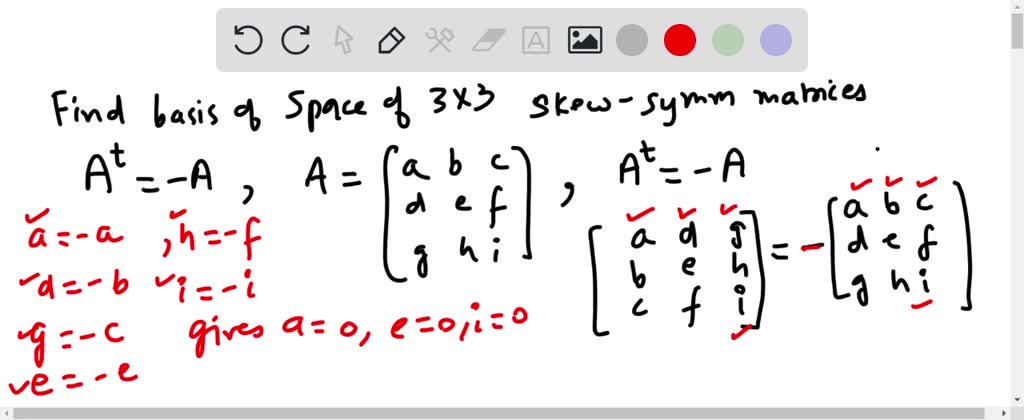 Find basis of Space of 3x3 skew-symm matrices
A^t = -A , A = [a b c
d e f
g h i] , A^t = -A
[a d g
b e h
c f i] = -[a b c
d e f
g h i]
a = -a , h = -f
d = -b i = -i
g = -c gives a = 0, e = 0, i = 0
e = -e